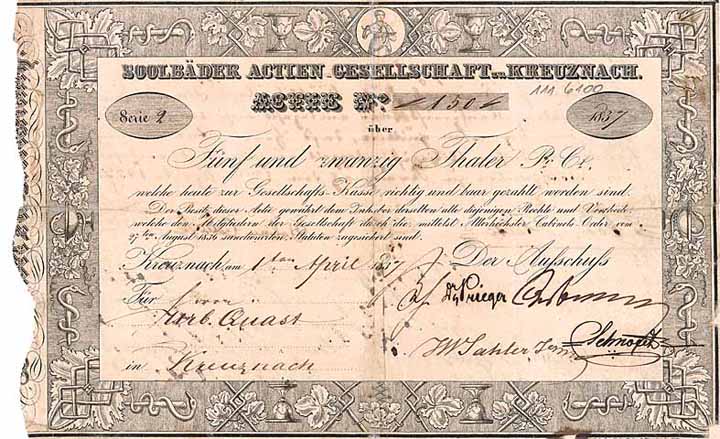 SOOLBÄDER ACTIEN-GESELLSCHAFT zu KREUZNACH.
ACTIE No 150
111 6100
Serie 2
1837
über
Fünf und zwanzig Thaler Pr. Ct.
welche heute zur Gesellschafts-Kasse richtig und baar gezahlt worden sind.
Der Besitz dieser Actie gewährt dem Inhaber derselben alle diejenigen Rechte und Vortheile,
welche den Mitgliedern der Gesellschaft durch die mittelst Allerhöchster Cabinets-Order vom
27ten August 1836 sanctionirten Statuten zugesichert sind.
Kreuznach am 1ten April 1837
Der Ausschuss
Für Herrn
Quast
Dr Prieger
in Kreuznach
Sahler
Schnapp